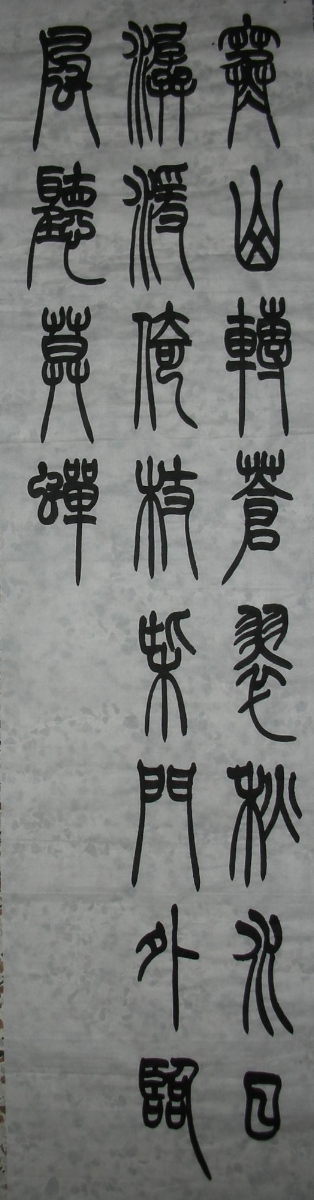 寒山轉蒼翠秋水日
潺湲倚杖柴門外臨
風聽莫蟬